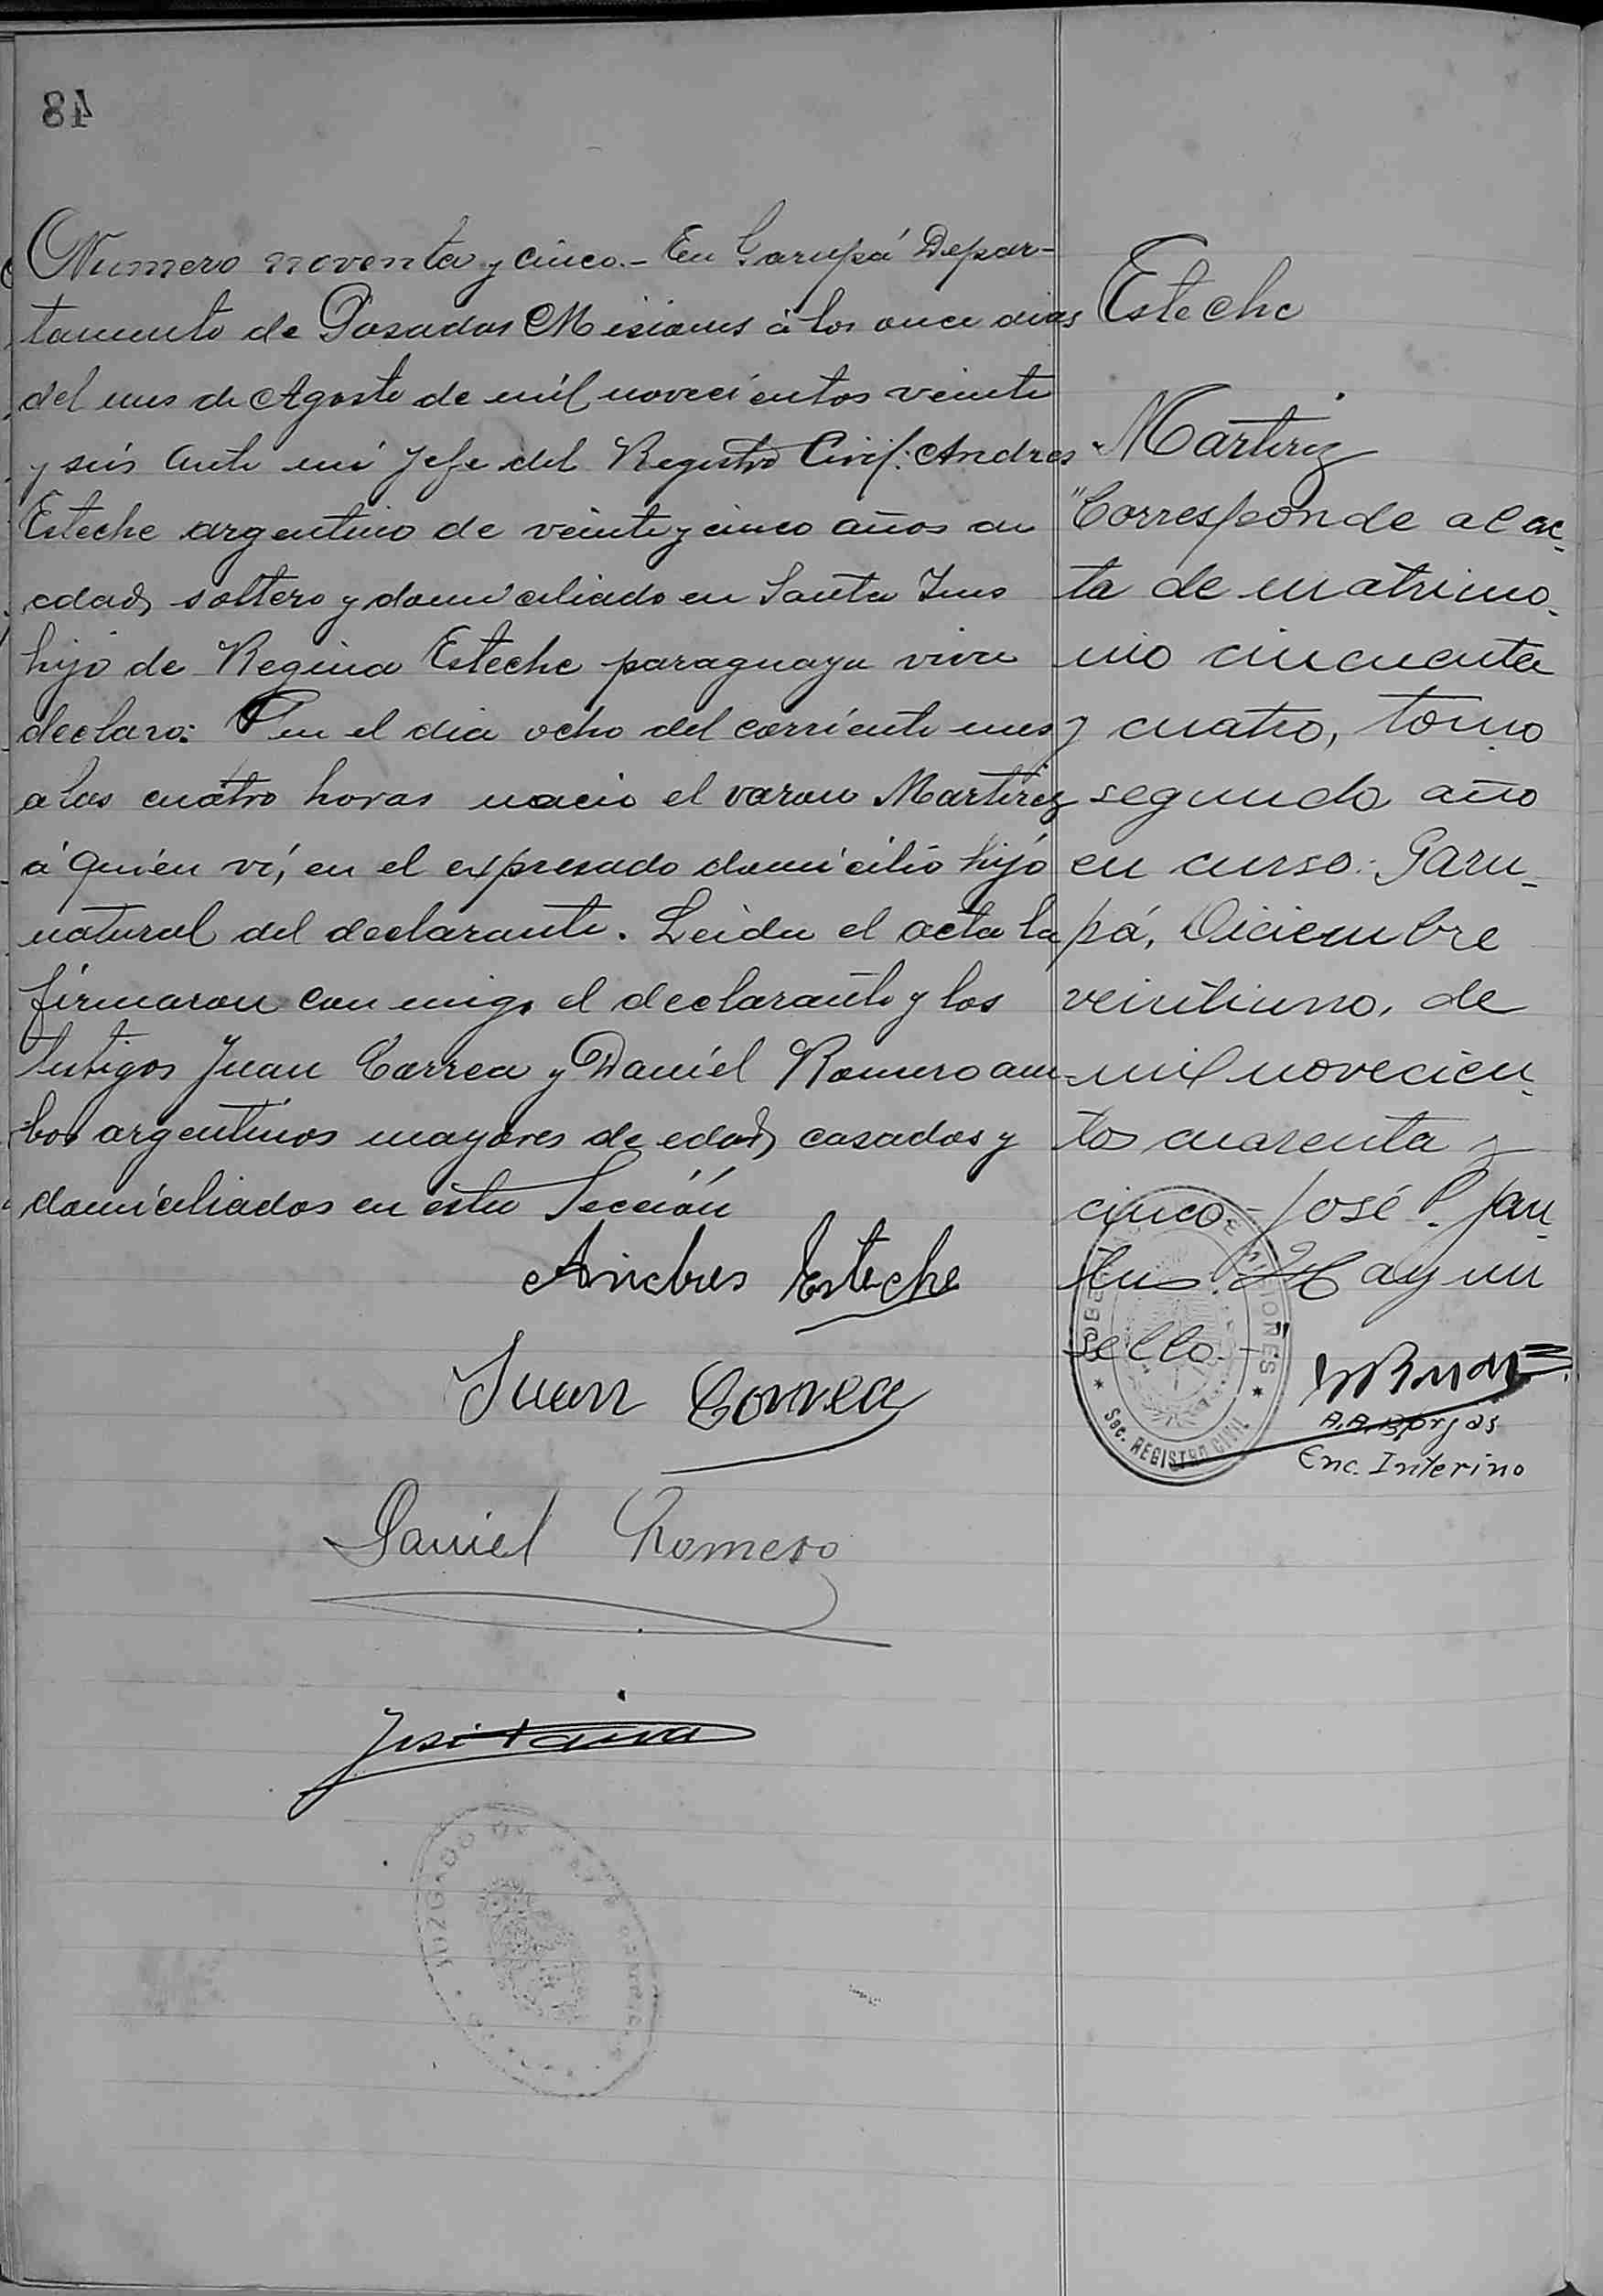 48
Numero noventa y cinco.- En Garupá Depar-
tamento de Posadas Misiones á los once dias
del mes de Agosto de mil novecientos veinte
y seis ante mi Jefe del Registro Civil: Andres
Esteche argentino de veinte y cinco años de
edad, soltero y domiciliado en Santa Ines
hijo de Regina Esteche paraguaya vive
declaro: en el dia ocho del corriente mes
a las cuatro horas nacio el varon Martirez
á quien vi, en el expresado domicilio hijo
natural del declarante. Leida el acta la
firmaron con migo el declarante y los
testigos Juan Correa y Daniel Romero am-
bos argentinos mayores de edad, casados y
domiciliados en esta Sección
Andres Esteche
Juan Correa
Daniel Romero
José
JUZGADO DE PAZ
Esteche
Martirez
"Corresponde al ac-
ta de matrimo-
nio cincuenta
y cuatro, tomo
segundo año
en curso. Garu-
pá, Diciembre
veintiuno, de
mil novecien-
tos cuarenta y
cinco.- José P.
Hay un
sello.-"
A.A. Borjas
Enc. Interino
Sec. REGISTRO CIVIL